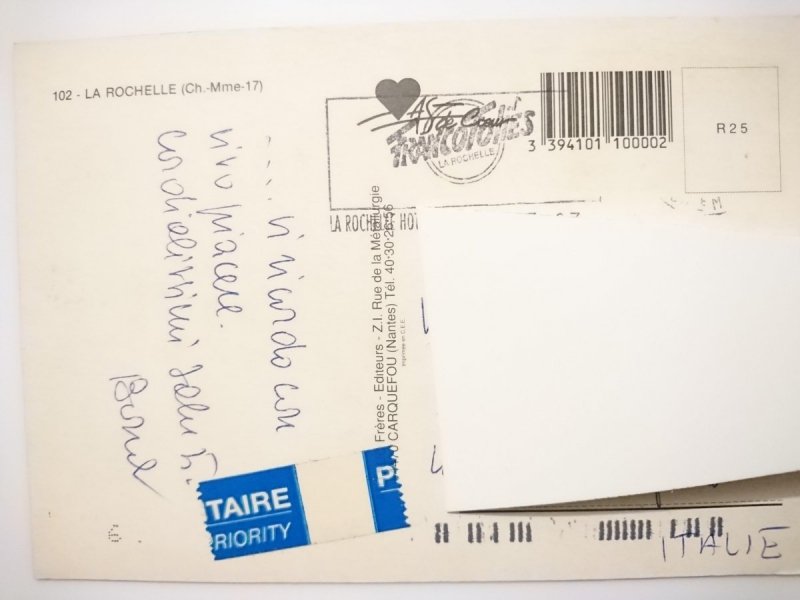 102 - LA ROCHELLE (Ch.-Mme-17)
.... vi ricordo con
vivo piacere.
Cordialissimi saluti.
AS de Cœur
FRANCOFOLIES
LA ROCHELLE
LA ROCHELLE HO
3 394101 100002
R 25
Frères - Editeurs - Z.I. Rue de la Métallurgie
CARQUEFOU (Nantes) Tél. 40-30-26-56
Imprimée en C.E.E.
TAIRE
RIORITY
P
ITALIE